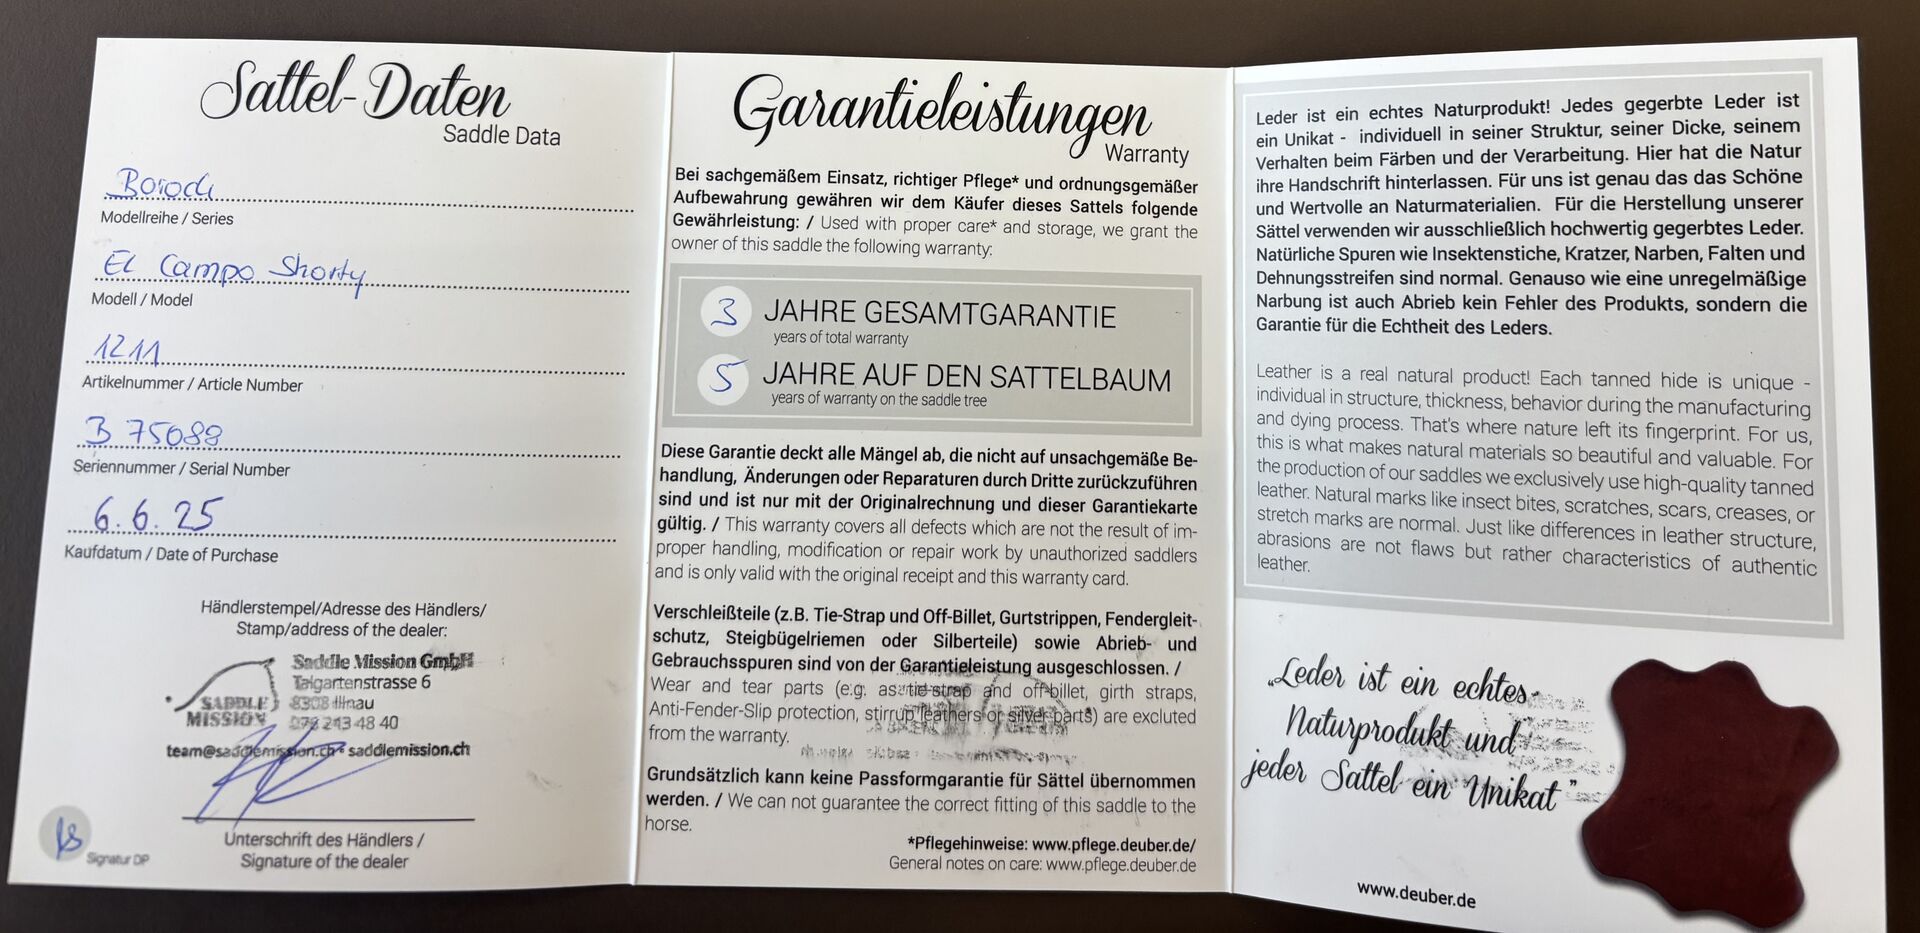 Sattel-Daten
Saddle Data
Modellreihe / Series
El Campo Shorty
Modell / Model
1211
Artikelnummer / Article Number
B 75088
Seriennummer / Serial Number
6.6.25
Kaufdatum / Date of Purchase
Händlerstempel/Adresse des Händlers/
Stamp/address of the dealer:
Saddle Mission GmbH
Talgartenstrasse 6
SADDLE 8308 Illnau
MISSION 079 213 48 40
team@saddlemission.ch • saddlemission.ch
Unterschrift des Händlers /
Signature of the dealer
Signatur DP
Garantieleistungen
Warranty
Bei sachgemäßem Einsatz, richtiger Pflege* und ordnungsgemäßer
Aufbewahrung gewähren wir dem Käufer dieses Sattels folgende
Gewährleistung: / Used with proper care* and storage, we grant the
owner of this saddle the following warranty:
3 JAHRE GESAMTGARANTIE
years of total warranty
5 JAHRE AUF DEN SATTELBAUM
years of warranty on the saddle tree
Diese Garantie deckt alle Mängel ab, die nicht auf unsachgemäße Be-
handlung, Änderungen oder Reparaturen durch Dritte zurückzuführen
sind und ist nur mit der Originalrechnung und dieser Garantiekarte
gültig. / This warranty covers all defects which are not the result of im-
proper handling, modification or repair work by unauthorized saddlers
and is only valid with the original receipt and this warranty card.
Verschleißteile (z.B. Tie-Strap und Off-Billet, Gurtstrippen, Fendergleit-
schutz, Steigbügelriemen oder Silberteile) sowie Abrieb- und
Gebrauchsspuren sind von der Garantieleistung ausgeschlossen. /
Wear and tear parts (e.g. as tie-strap and off-billet, girth straps,
Anti-Fender-Slip protection, stirrup leathers or silver parts) are excluted
from the warranty.
Grundsätzlich kann keine Passformgarantie für Sättel übernommen
werden. / We can not guarantee the correct fitting of this saddle to the
horse.
*Pflegehinweise: www.pflege.deuber.de/
General notes on care: www.pflege.deuber.de
Leder ist ein echtes Naturprodukt! Jedes gegerbte Leder ist
ein Unikat - individuell in seiner Struktur, seiner Dicke, seinem
Verhalten beim Färben und der Verarbeitung. Hier hat die Natur
ihre Handschrift hinterlassen. Für uns ist genau das das Schöne
und Wertvolle an Naturmaterialien. Für die Herstellung unserer
Sättel verwenden wir ausschließlich hochwertig gegerbtes Leder.
Natürliche Spuren wie Insektenstiche, Kratzer, Narben, Falten und
Dehnungsstreifen sind normal. Genauso wie eine unregelmäßige
Narbung ist auch Abrieb kein Fehler des Produkts, sondern die
Garantie für die Echtheit des Leders.
Leather is a real natural product! Each tanned hide is unique -
individual in structure, thickness, behavior during the manufacturing
and dying process. That's where nature left its fingerprint. For us,
this is what makes natural materials so beautiful and valuable. For
the production of our saddles we exclusively use high-quality tanned
leather. Natural marks like insect bites, scratches, scars, creases, or
stretch marks are normal. Just like differences in leather structure,
abrasions are not flaws but rather characteristics of authentic
leather.
„Leder ist ein echtes
Naturprodukt und
jeder Sattel ein Unikat"
www.deuber.de